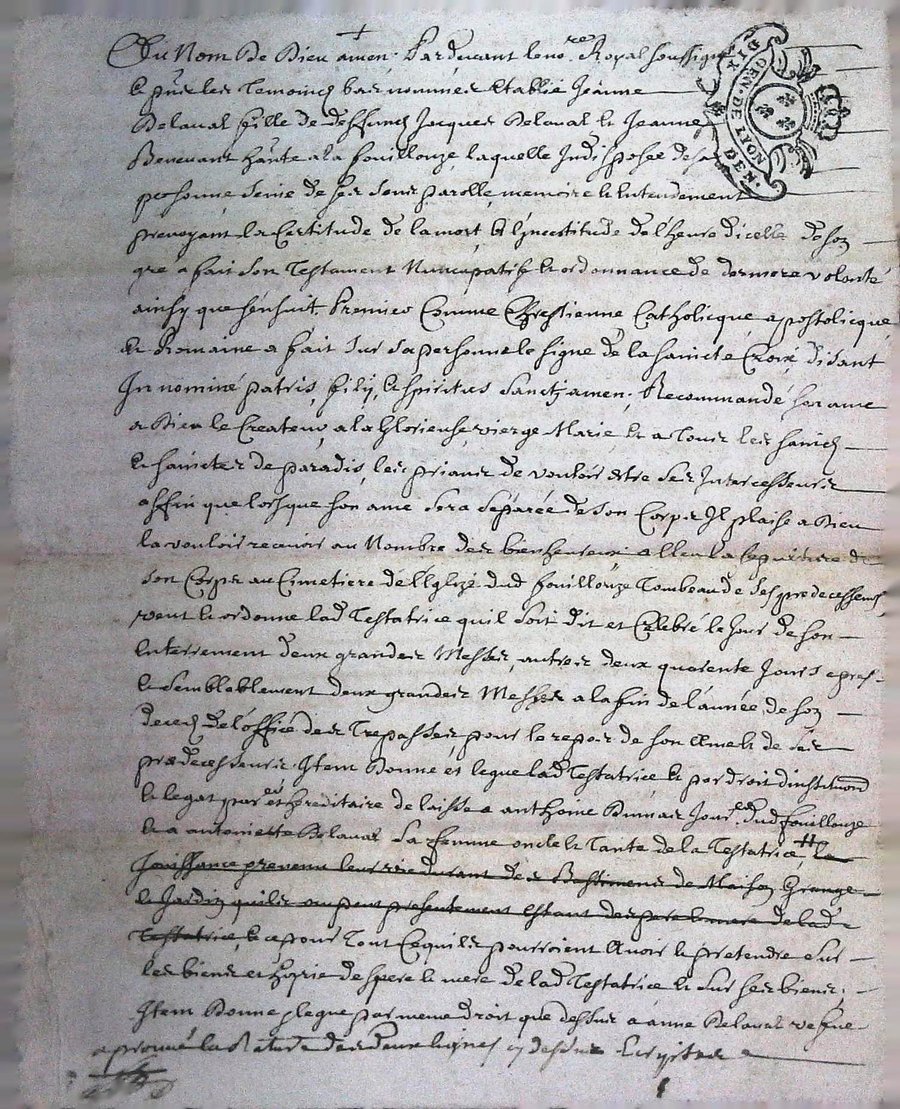 Au Nom De Dieu amen. Pardevant le no.re Royal soussigné
DIX
GEN. DE LYON
DEN.
et puis les Temoings bas nommes Establie Jeanne
Delaval fille de deffuncts Jacques Delaval et Jeanne
Benevant hante a la fouillouze, laquelle Indisposée de sa
personne saine de ses sens parolle, memoire et Entendement
prevoyant la Certitude de la mort, et lincertitude de lheure dicelle de son
gre a fait son Testament Nuncupatif et ordonnance de derniere volonté
ainsy que sensuit. Premier Comme Chrestienne Catholicque, apostolicque
Et Romaine a fait sur sa personne le signe de la saincte Croix, disant
In nomine patris, filij, et spiritus Sancti, amen; Recommandé son ame
a Dieu le Createur, a la Glorieuse vierge Marie et a Tous les saincts
et sainctes de paradis, les priant de vouloir estre ses Intercesseurs
affin que lorsque son ame sera séparée de son Corps Il plaise a Dieu
la vouloir recevoir au Nombre des bienheureux la sepulture de
son Corps au Cimetiere de lEglize dud fouillouze Tombeau de ses predecesseurs
veut et ordonne lad Testatrice quil soit dit et Celebré le Jour de son
Enterrement deux grandes Messes, autres deux quarente Jours apres
et semblablement deux grandes Messes a la fin de lannée de son
deceds de loffice des Trepasses, pour le repos de son ame et de ses
predecesseurs. Item Donne et legue lad Testatrice et par droit dinstitution
et legat hereditaire delaisse a anthoine dud fouillouze
et a antoinette Delaval sa femme oncle et Tante de la Testatrice, # la
Jouissance leur vie durant des Bastiments de Maison Grange
et Jardin quils presentement estant des pere et mere de lad
Testatrice, et ce pour Tout Ce quils pourroient avoir et pretendre sur
les biens et de pere et mere de lad Testatrice et sur ses biens;
Item Donne et legue par meme droit que dessus a anne Delaval vefve
aprouvé la Rature des deux lignes cy dessus